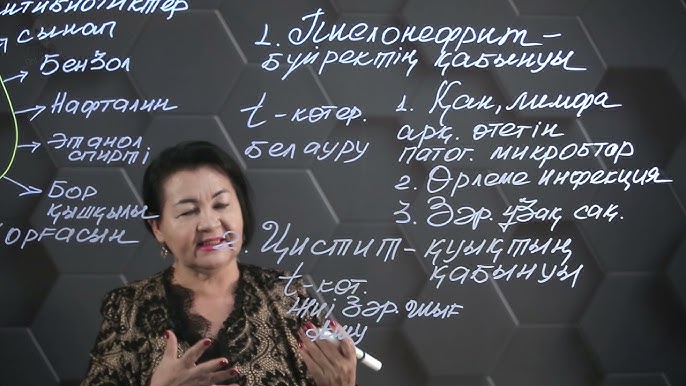 антибиотиктер
сынап
Бензол
Нафталин
Этанол
спирті
Бор
қышқылы
қорғасын
1. Пиелонефрит –
бүйректің қабынуы
t – көтер.
Бел ауру
1. Қан, лимфа
арқ. өтетін
патог. микробтар
2. Өрлеме инфекция
3. Зәр. ұзақ сақ.
2. Цистит – қуықтың
қабынуы
t – көт.
Жиі зәр. шығ